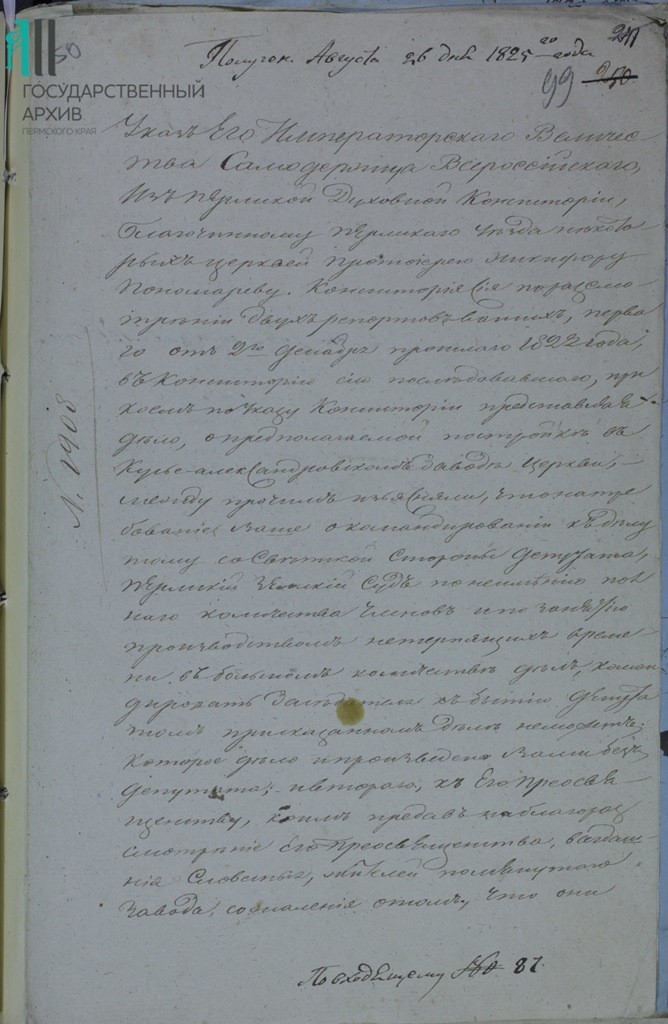 50
247
Получен. Августа 26 дня 1825 го года
99 250
ГОСУДАРСТВЕННЫЙ
АРХИВ
ПЕРМСКОГО КРАЯ
Указъ Его Императорскаго Величес
тва Самодержца Всероссійскаго,
Изъ Пермской Духовной Консисторіи,
Благочинному Пермскаго уѣзда
рыхъ церквей протоіерею Никифору
Пономареву. Консисторія сія по разсмо
трѣніи двухъ репортовъ вашихъ, перва
го отъ 2го Декабря прошлаго 1822 года,
въ Консисторію сію послѣдовавшаго, при
коемъ по указу Консисторіи представляя
дѣло, о предполагаемой постройкѣ въ
Кусье-александровскомъ заводѣ церкви,
между прочимъ изъяснили, что на тре
бованіе ваше о командированіи къ дѣлу
тому со Свѣтской Стороны Депутата,
Пермскій Земскій Судъ по неимѣнію пол
наго количества Членовъ и по занятію
производствомъ нетерпящихъ време
ни въ большомъ количествѣ дѣлъ, коман
дировать Засѣдателя къ бытію Депута
томъ при сказанномъ дѣлѣ неможетъ;
которое дѣло и произведено Вами безъ
депутата; и втораго, къ Его Преосвя
щенству, коимъ предавъ на благораз
смотрѣніе Его Преосвященства,
нія Словесныя, жителей помянутаго
Завода, сожаленія о томъ, что они
N. 2908
По входящему 87.